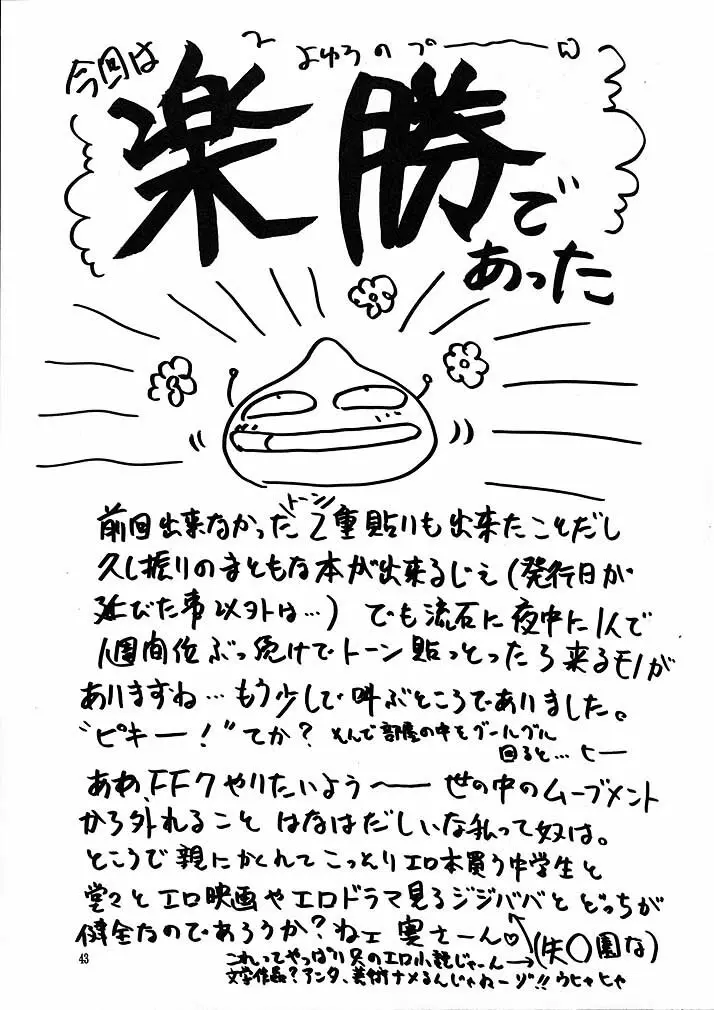 今回は
よゆうのブーーーい
楽勝で
あった
トーン
前回出来なかった2重貼りも出来たことだし
久し振りのまともな本が出来るじぇ(発行日が
延びた事以外は…)でも流石に夜中に1人で
1週間位ぶっ続けでトーン貼っとったら来るモノが
ありますね…もう少しで叫ぶところでありました。
"ピキー!"てか?そんで部屋の中をグールグル
回ると…ヒー
ああ、FF7やりたいよう〜 世の中のムーブメント
から外れること はなはだしいな私って奴は。
ところで親にかくれてこっそりエロ本買う中学生と
堂々とエロ映画やエロドラマ見るジジババとどっちが
健全なのであろうか?ねェ奥さーん♡(失〇園な)
これってやっぱ只のエロ小説じゃーん→
文学作品?アンタ、美術ナメるんじゃねーゾ!!ウヒャヒャ
43